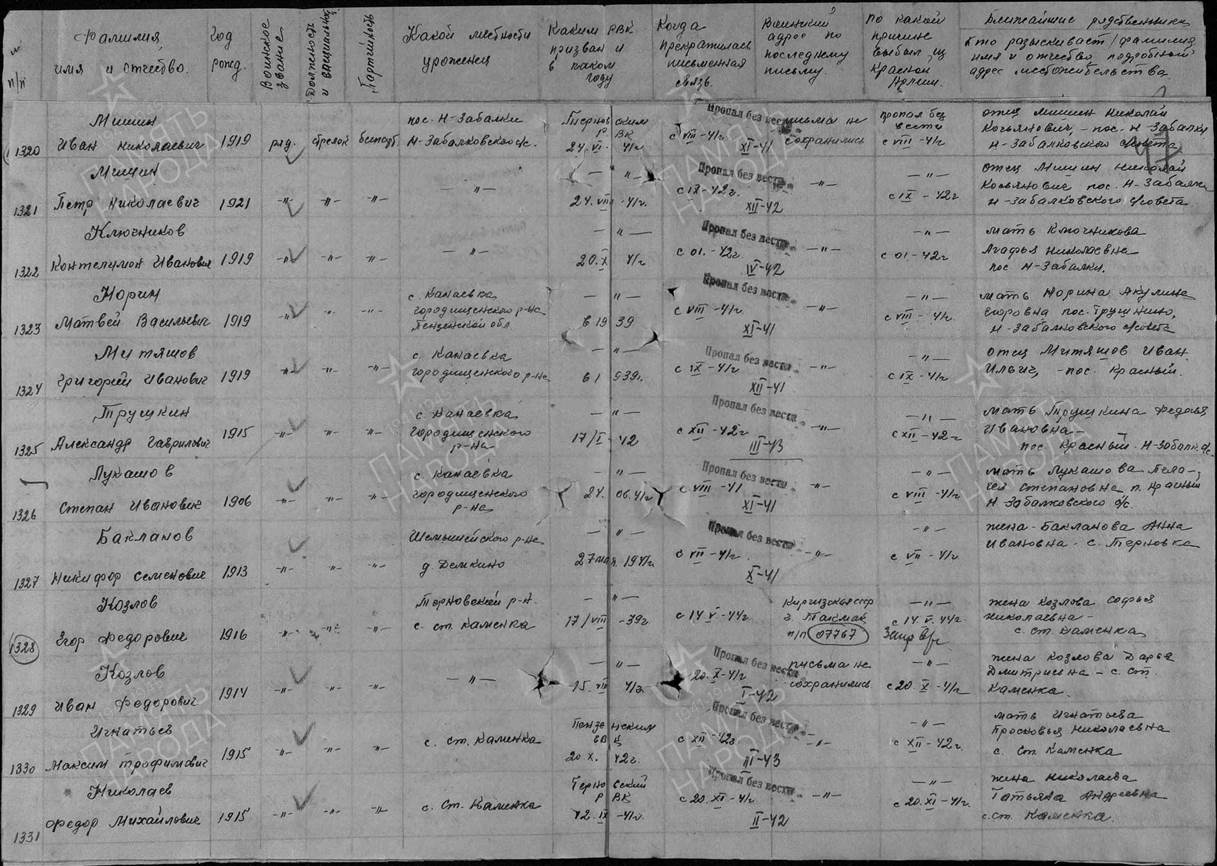 № п/п
Фамилия, имя и отчество.
Год рожд.
Воинское звание
Должность и специальность
Партийность
Какой местности уроженец
Каким РВК призван и в каком году
Когда прекратилась письменная связь.
Воинский адрес по последнему письму
По какой причине выбыл из Красной Армии.
Ближайшие родственники
Кто разыскивает /фамилия имя и отчество, подробный адрес местожительства
1320 Мишин Иван Николаевич 1919 ряд. стрелок беспарт пос. Н-Забалки Н-Забалковского с/с. Терновским РВК 24. VI. 41г с VII-41г Пропал без вести XI-41 письма не сохранились пропал без вести с VIII-41г отец Мишин Николай Косьянович, - пос. Н Забалки Н-Забалковского с/совета
47
1321 Мишин Петр Николаевич 1921 -"- -"- -"- -"- -"- 24. VIII -41г. с IX-42г. Пропал без вести XII-42 -"- -"- с IX-42г отец Мишин Николай Косьянович пос. Н-Забалки Н-Забалковского с/совета
1322 Ключников Контелимон Иванович 1919 -"- -"- -"- -"- -"- 20. X 41г с 01.-42г. Пропал без вести IV-42 -"- -"- с 01-42г мать Ключникова Агафья Николаевна пос Н-Забалки.
1323 Норин Матвей Васильевич 1919 -"- -"- -"- с Канаевка Городищенского р-на Пензенской обл -"- в 1939 с VIII-41г Пропал без вести XI-41 -"- -"- с VIII-41г. мать Норина Акулина Егоровна пос. Трушкино, Н-Забалковского с/совета
1324 Митяшов Григорий Иванович 1919 -"- -"- -"- с. Канаевка Городищенского р-на -"- в 1939г. с IX-41г Пропал без вести XII-41 -"- -"- с IX-41г отец Митяшов Иван Ильич, - пос. Красный.
1325 Трушкин Александр Гаврилович 1915 -"- -"- -"- с Канаевка Городищенского р-на -"- 17/I-42 с XII-42г Пропал без вести III-43 -"- -"- с XII-42г. мать Трушкина Федосья Ивановна - пос Красный - Н-Забалк с/с.
1326 Лукашов Степан Иванович 1906 -"- -"- -"- с. Канаевка Городищенского р-на -"- 24. 06.41г с VIII-41 Пропал без вести XI-41 -"- -"- с VIII-41г. мать Лукашова Пелагея Степановна п. Красный Н Забалковского с/с.
1327 Бакланов Никифор Семенович 1913 -"- -"- -"- Шемышейского р-на д. Демкино -"- 27 1941г с VII-41г. Пропал без вести X-41 -"- -"- с VII-41г жена-Бакланова Анна Ивановна - с. Терновка
1328 Козлов Егор Федорович 1916 -"- -"- -"- Терновский р-н. с. ст. Каменка -"- 17/VIII-39г с 14 V-44г Киргизская сср г. Токмак п/п 07767 -"- с 14. V. 44г. жена Козлова Софья Николаевна - с. ст. Каменка
1329 Козлов Иван Федорович 1914 -"- -"- -"- -"- -"- 15. VII 41г с 20. X-41г Пропал без вести I-42 письма не сохранились -"- с 20. X-41г жена Козлова Дарья Дмитриевна - с. Ст Каменка.
1330 Игнатьев Максим Трофимович 1915 -"- -"- -"- с. ст. Каменка Пензенским 20 X. 42г. с XII-42г Пропал без вести III-43 -"- -"- с XII-42г. мать Игнатьева Просковья Николаевна с. ст Каменка
1331 Николаев Федор Михайлович 1915 -"- -"- -"- с. Ст. Каменка Терновский РВК 12. IX -41г. с 20. XI-41г Пропал без вести II-42 -"- -"- с 20. XI-41г. жена Николаева Татьяна Андреевна с. ст. Каменка.
ПАМЯТЬ НАРОДА